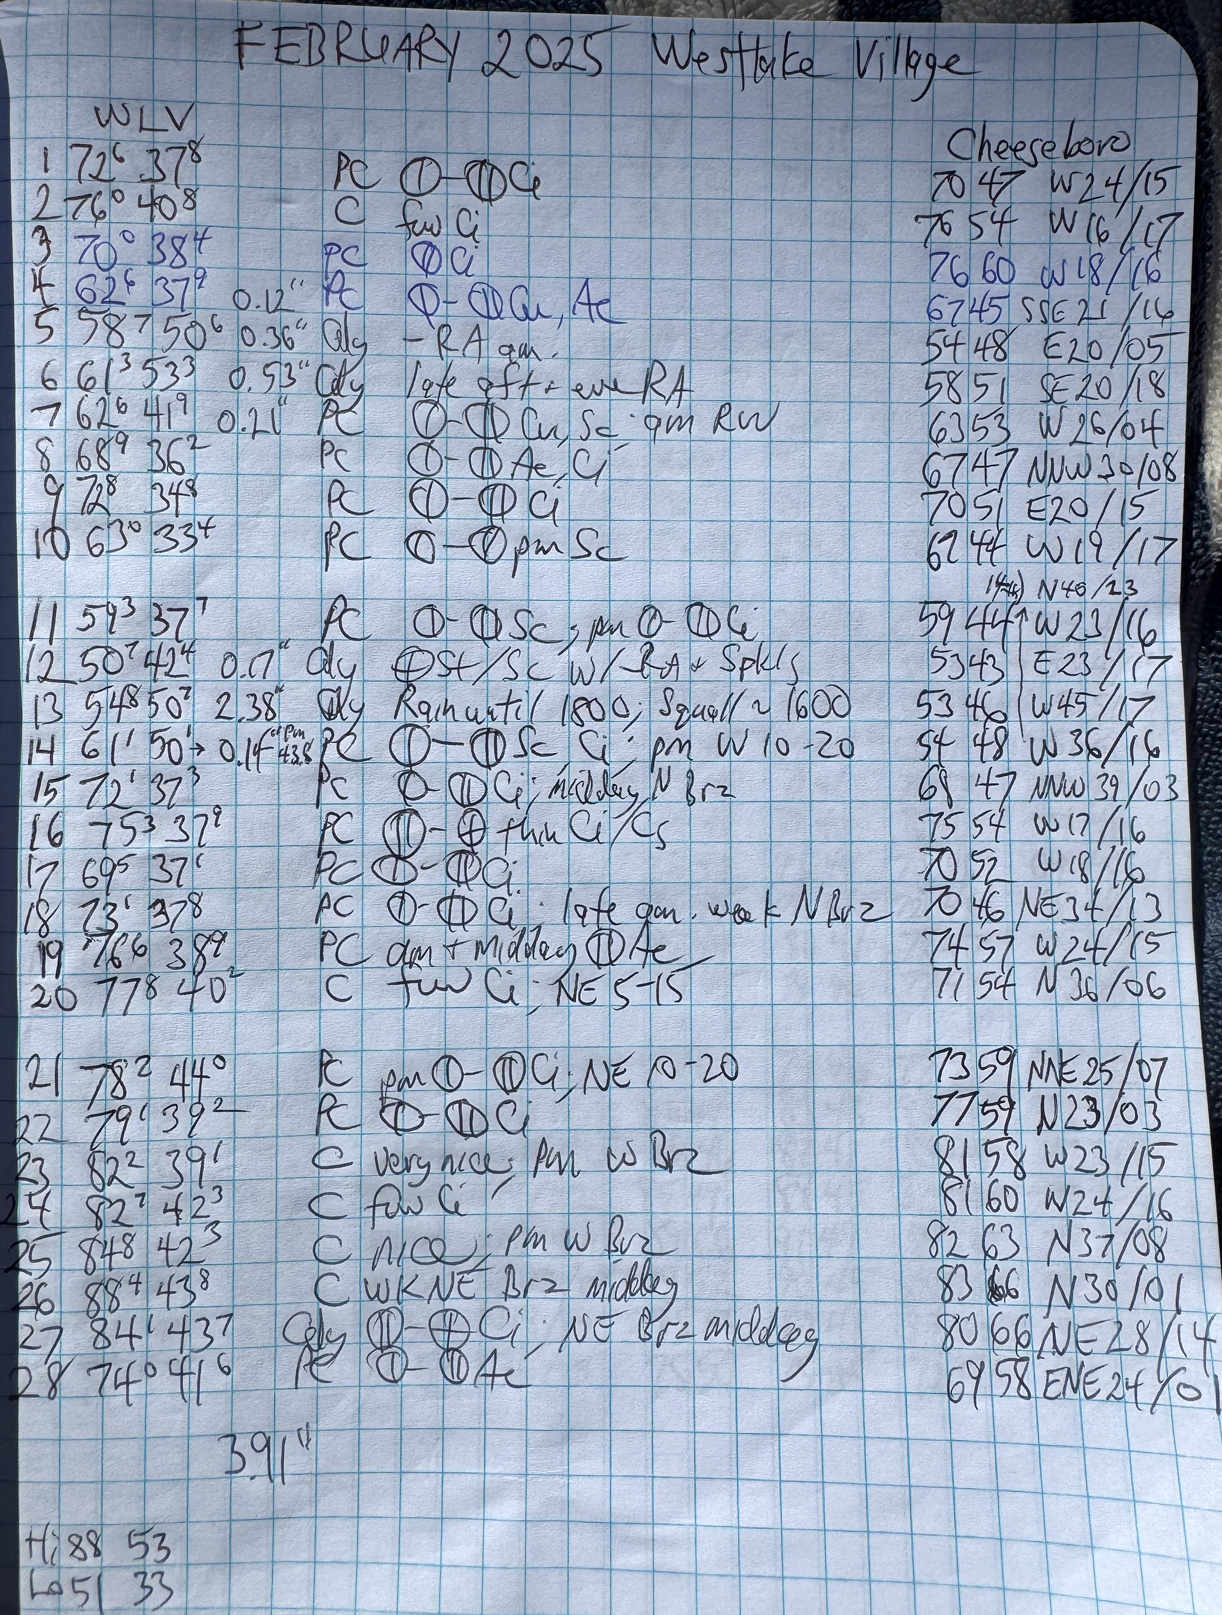 FEBRUARY 2025 Westlake Village
WLV Cheeseboro
1 72⁶ 37⁸ PC ⦶-⦶Ci 70 47 W24/15
2 76⁰ 40⁸ C few Ci 76 54 W16/17
3 70⁰ 38⁴ PC ⦶Ci 76 60 W18/16
4 62⁶ 37⁹ 0.12" PC ⦶-⦶Cu, Ac 67 45 SSE21/16
5 58⁷ 50⁶ 0.36" Cldy -RA am. 54 48 E20/05
6 61³ 53³ 0.53" Cldy late aft + eve RA 58 51 SE20/18
7 62⁶ 41⁹ 0.21" PC ⦶-⦶Cu, Sc; am RW 63 53 W26/04
8 68⁹ 36² PC ⦶-⦶Ac, Ci 67 47 NNW30/08
9 72⁸ 34⁸ PC ⦶-⦶Ci 70 51 E20/15
10 63⁰ 33⁴ PC ⦶-⦶pm Sc 62 44 W19/17
N40/23
11 59³ 37⁷ PC ⦶-⦶Sc; pm ⦶-⦶Ci 59 44↑ W23/16
12 50⁷ 42⁴ 0.17" Cldy ⊕St/Sc W/-RA + Spkls 53 43 E23/17
13 54⁸ 50⁷ 2.38" Cldy Rain until 1800; Squall ~1600 53 46 W45/17
14 61¹ 50¹→ 0.14" pm 43.8 PC ⦶-⦶Sc, Ci; pm W 10-20 54 48 W36/16
15 72¹ 37³ PC ⦶-⦶Ci; midday N Brz 68 47 NNW39/03
16 75³ 37⁹ PC ⦶-⊕ thin Ci/Cs 75 54 W17/16
17 69⁵ 37⁶ PC ⦶-⦶Ci 70 52 W18/16
18 73¹ 37⁸ PC ⦶-⦶Ci; late am. weak N Brz 70 46 NE34/13
19 76⁶ 38⁹ PC am + midday ⦶Ac 74 57 W24/15
20 77⁸ 40² C few Ci; NE 5-15 71 54 N36/06
21 78² 44⁰ PC pm ⦶-⦶Ci; NE 10-20 73 59 NNE25/07
22 79¹ 39² PC ⦶-⦶Ci 77 59 N23/03
23 82² 39¹ C very nice; pm W Brz 81 58 W23/15
24 82⁷ 42³ C few Ci 81 60 W24/16
25 84⁸ 42³ C nice; pm W Brz 82 63 N37/08
26 88⁴ 43⁸ C WK NE Brz midday 83 66 N30/01
27 84¹ 43⁷ Cldy ⦶-⊕Ci; NE Brz midday 80 66 NE28/14
28 74⁰ 41⁶ PC ⦶-⦶Ac 69 58 ENE24/01
3.91"
Hi 88 53
Lo 51 33